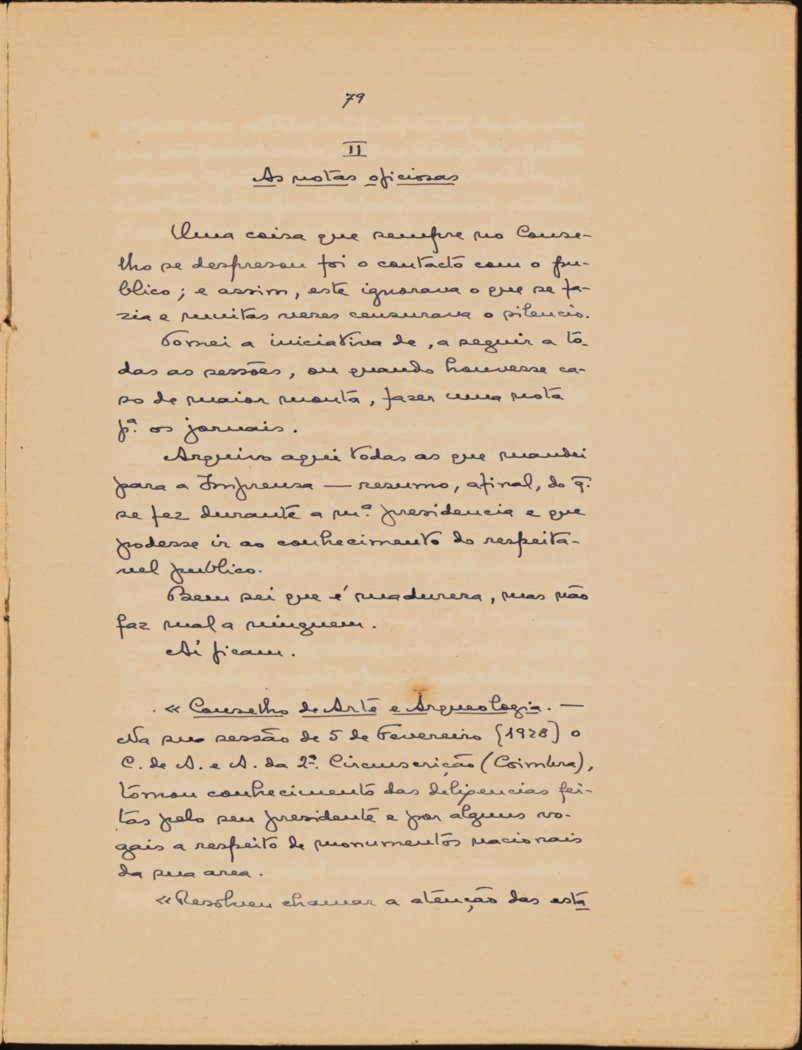 79
II
As notas oficiosas
Uma coisa que sempre no Conse-
lho se despresou foi o contacto com o pu-
blico; e assim, este ignorava o que se fa-
zia e muitas vezes censurava o silencio.
Tomei a iniciativa de, a seguir a to-
das as sessões, ou quando houvesse ca-
so de maior monta, fazer uma nota
pª. os jornais.
Arquivo aqui todas as que mandei
para a Imprensa — resumo, afinal, do q̃.
se fez durante a mª. presidencia e que
podesse ir ao conhecimento do respeita-
vel publico.
Bem sei que é madureza, mas não
faz mal a ninguem.
Aí ficam.
. « Conselho de Arte e Arqueologia. —
Na sua sessão de 5 de Fevereiro [1928] o
C. de A. e A. da 2ª. Circunscrição (Coimbra),
tomou conhecimento das deligencias fei-
tas pelo seu presidente e por alguns vo-
gais a respeito de monumentos nacionais
da sua area.
« Resolveu chamar a atenção das está